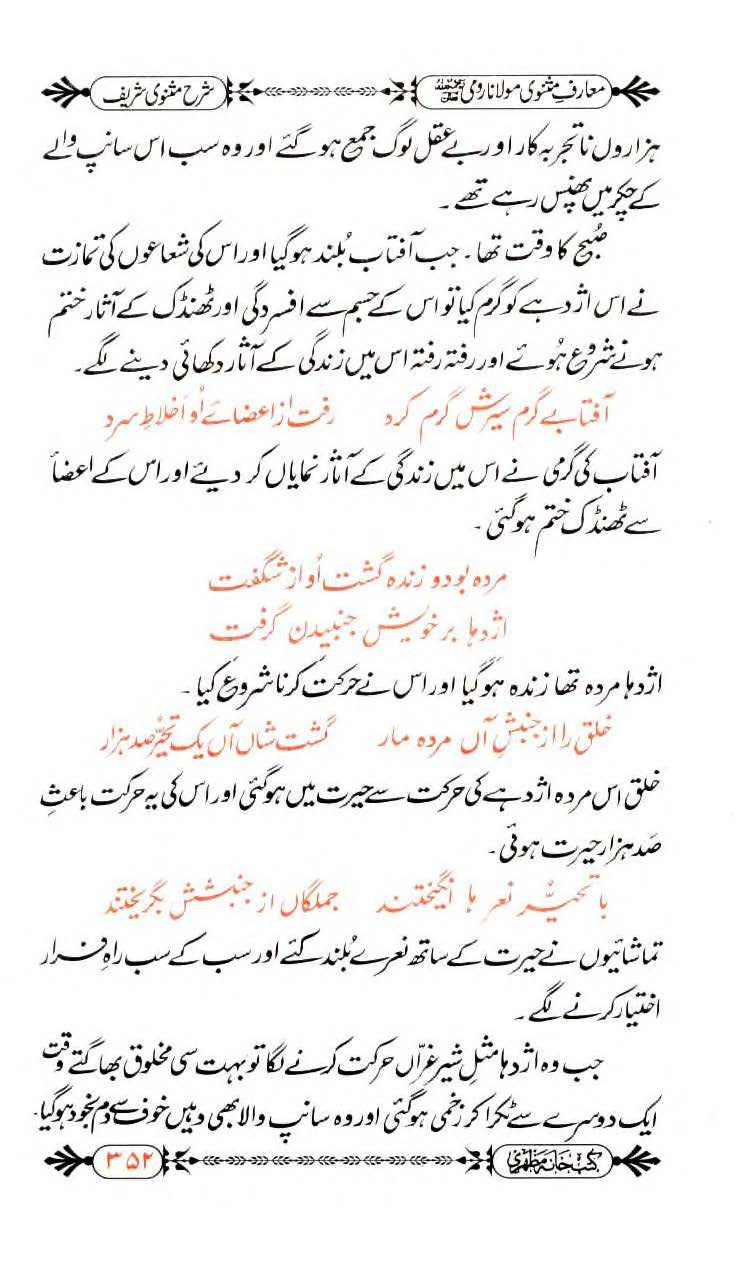 معارفِ مثنوی مولانا رومی رحمۃ اللہ علیہ شرح مثنوی شریف
ہزاروں ناتجربہ کار اور بے عقل لوگ جمع ہو گئے اور وہ سب اس سانپ والے
کے چکر میں پھنس رہے تھے ۔
صُبح کا وقت تھا ۔ جب آفتاب بُلند ہوگیا اور اس کی شعاعوں کی تمازت
نے اس اژدہے کو گرم کیا تو اس کے جسم سے افسردگی اور ٹھنڈک کے آثار ختم
ہونے شروع ہُوئے اور رفتہ رفتہ اس میں زندگی کے آثار دکھائی دینے لگے۔
آفتابے گرم سیرش گرم کرد رفت از اعضائے اُو اَخلاطِ سرد
آفتاب کی گرمی نے اس میں زندگی کے آثار نمایاں کر دیئے اور اس کے اعضأ
سے ٹھنڈک ختم ہوگئی ۔
مردہ بود و زندہ گشت اُو از شگفت
اژدہا بر خویش جنبیدن گرفت
اژدہا مردہ تھا زندہ ہوگیا اور اس نے حرکت کرنا شروع کیا ۔
خلق را از جنبشِ آں مردہ مار گشت شاں آں یک تحیّر صد ہزار
خلق اس مردہ اژدہے کی حرکت سے حیرت میں ہوگئی اور اس کی یہ حرکت باعثِ
صَد ہزار حیرت ہوئی ۔
با تحیُّر نعر ہا انگیختند جملگاں از جنبشش بگریختند
تماشائیوں نے حیرت کے ساتھ نعرے بُلند کئے اور سب کے سب راہِ فرار
اختیار کرنے لگے ۔
جب وہ اژدہا مثلِ شیر غرّاں حرکت کرنے لگا تو بہت سی مخلوق بھاگتے وقت
ایک دوسرے سے ٹکرا کر زخمی ہوگئی اور وہ سانپ والا بھی وہیں خوف سے دم بخود ہوگیا۔
کتب خانہ مظہری ۳۵۲